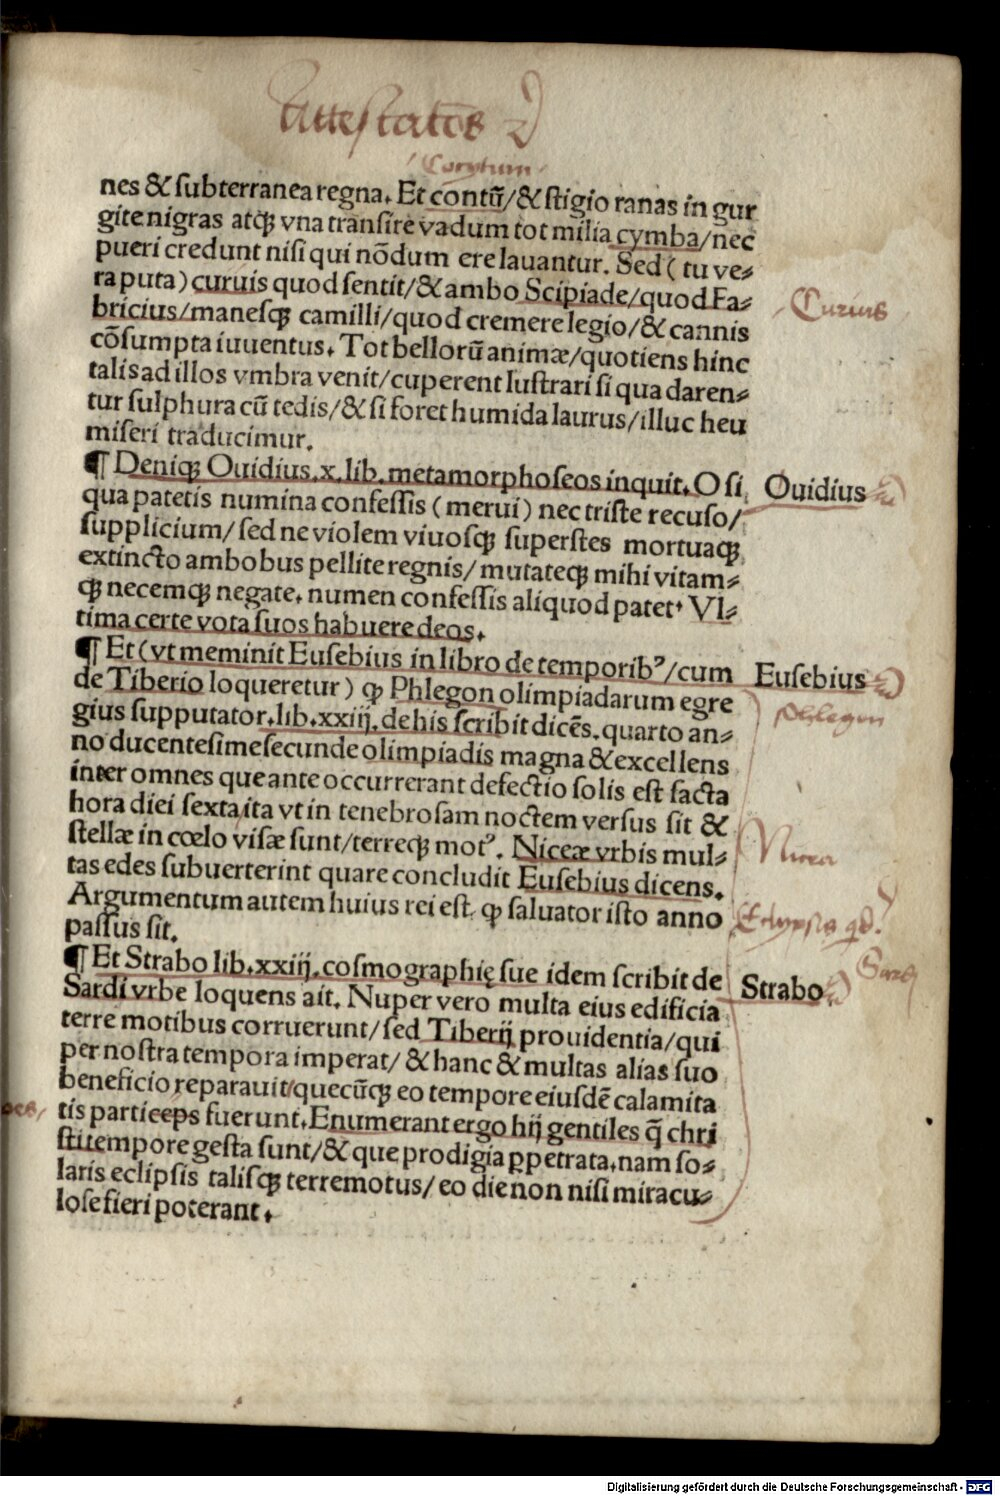 Attestatōes
Corytum
nes & subterranea regna. Et contū/& stigio ranas in gur
gite nigras atqꝫ vna transire vadum tot milia cymba/nec
pueri credunt nisi qui nōdum ere lauantur. Sed ( tu ve⸗
ra puta ) curuis quod sentit/& ambo Scipiade/quod Fa⸗
Curius
bricius/manesqꝫ camilli/quod cremere legio/& cannis
cōsumpta iuuentus. Tot bellorū animæ/quotiens hinc
talis ad illos vmbra venit/cuperent lustrari si qua daren⸗
tur sulphura cū tedis/& si foret humida laurus/illuc heu
miseri traducimur.
¶ Deniqꝫ Ouidius.x.lib.metamorphoseos inquit. O si
Ouidius
qua patetis numina confessis ( merui ) nec triste recuso/
supplicium/ sed ne violem viuosqꝫ superstes mortuaqꝫ
extincto ambobus pellite regnis/ mutateqꝫ mihi vitam⸗
qꝫ necemqꝫ negate. numen confessis aliquod patet. Vl⸗
tima certe vota suos habuere deos.
¶ Et ( vt meminit Eusebius in libro de temporibꝰ/cum
Eusebius
de Tiberio loqueretur ) ꝙ Phlegon olimpiadarum egre
Phlegon
gius supputator.lib.xxiij.de his scribit dicēs.quarto an⸗
no ducentesimesecunde olimpiadis magna & excellens
inter omnes que ante occurrerant defectio solis est facta
hora diei sexta ita vt in tenebrosam noctem versus sit &
stellæ in cœlo visæ sunt/terreqꝫ motꝰ. Niceæ vrbis mul⸗
Nicea
tas edes subuerterint quare concludit Eusebius dicens.
Argumentum autem huius rei est ꝙ saluator isto anno
Eclypsis
passus sit.
¶ Et Strabo lib.xxiij.cosmographię sue idem scribit de
Strabo
Sardi vrbe loquens ait. Nuper vero multa eius edificia
terre motibus corruerunt/sed Tiberij prouidentia/qui
per nostra tempora imperat/ & hanc & multas alias suo
beneficio reparauit/quecūqꝫ eo tempore eiusdē calamita
tis particeps fuerunt. Enumerant ergo hij gentiles q̄ chri
sti tempore gesta sunt/& que prodigia ꝑpetrata.nam so⸗
laris eclipsis talisqꝫ terremotus/ eo die non nisi miracu⸗
lose fieri poterant.
Digitalisierung gefördert durch die Deutsche Forschungsgemeinschaft - DFG